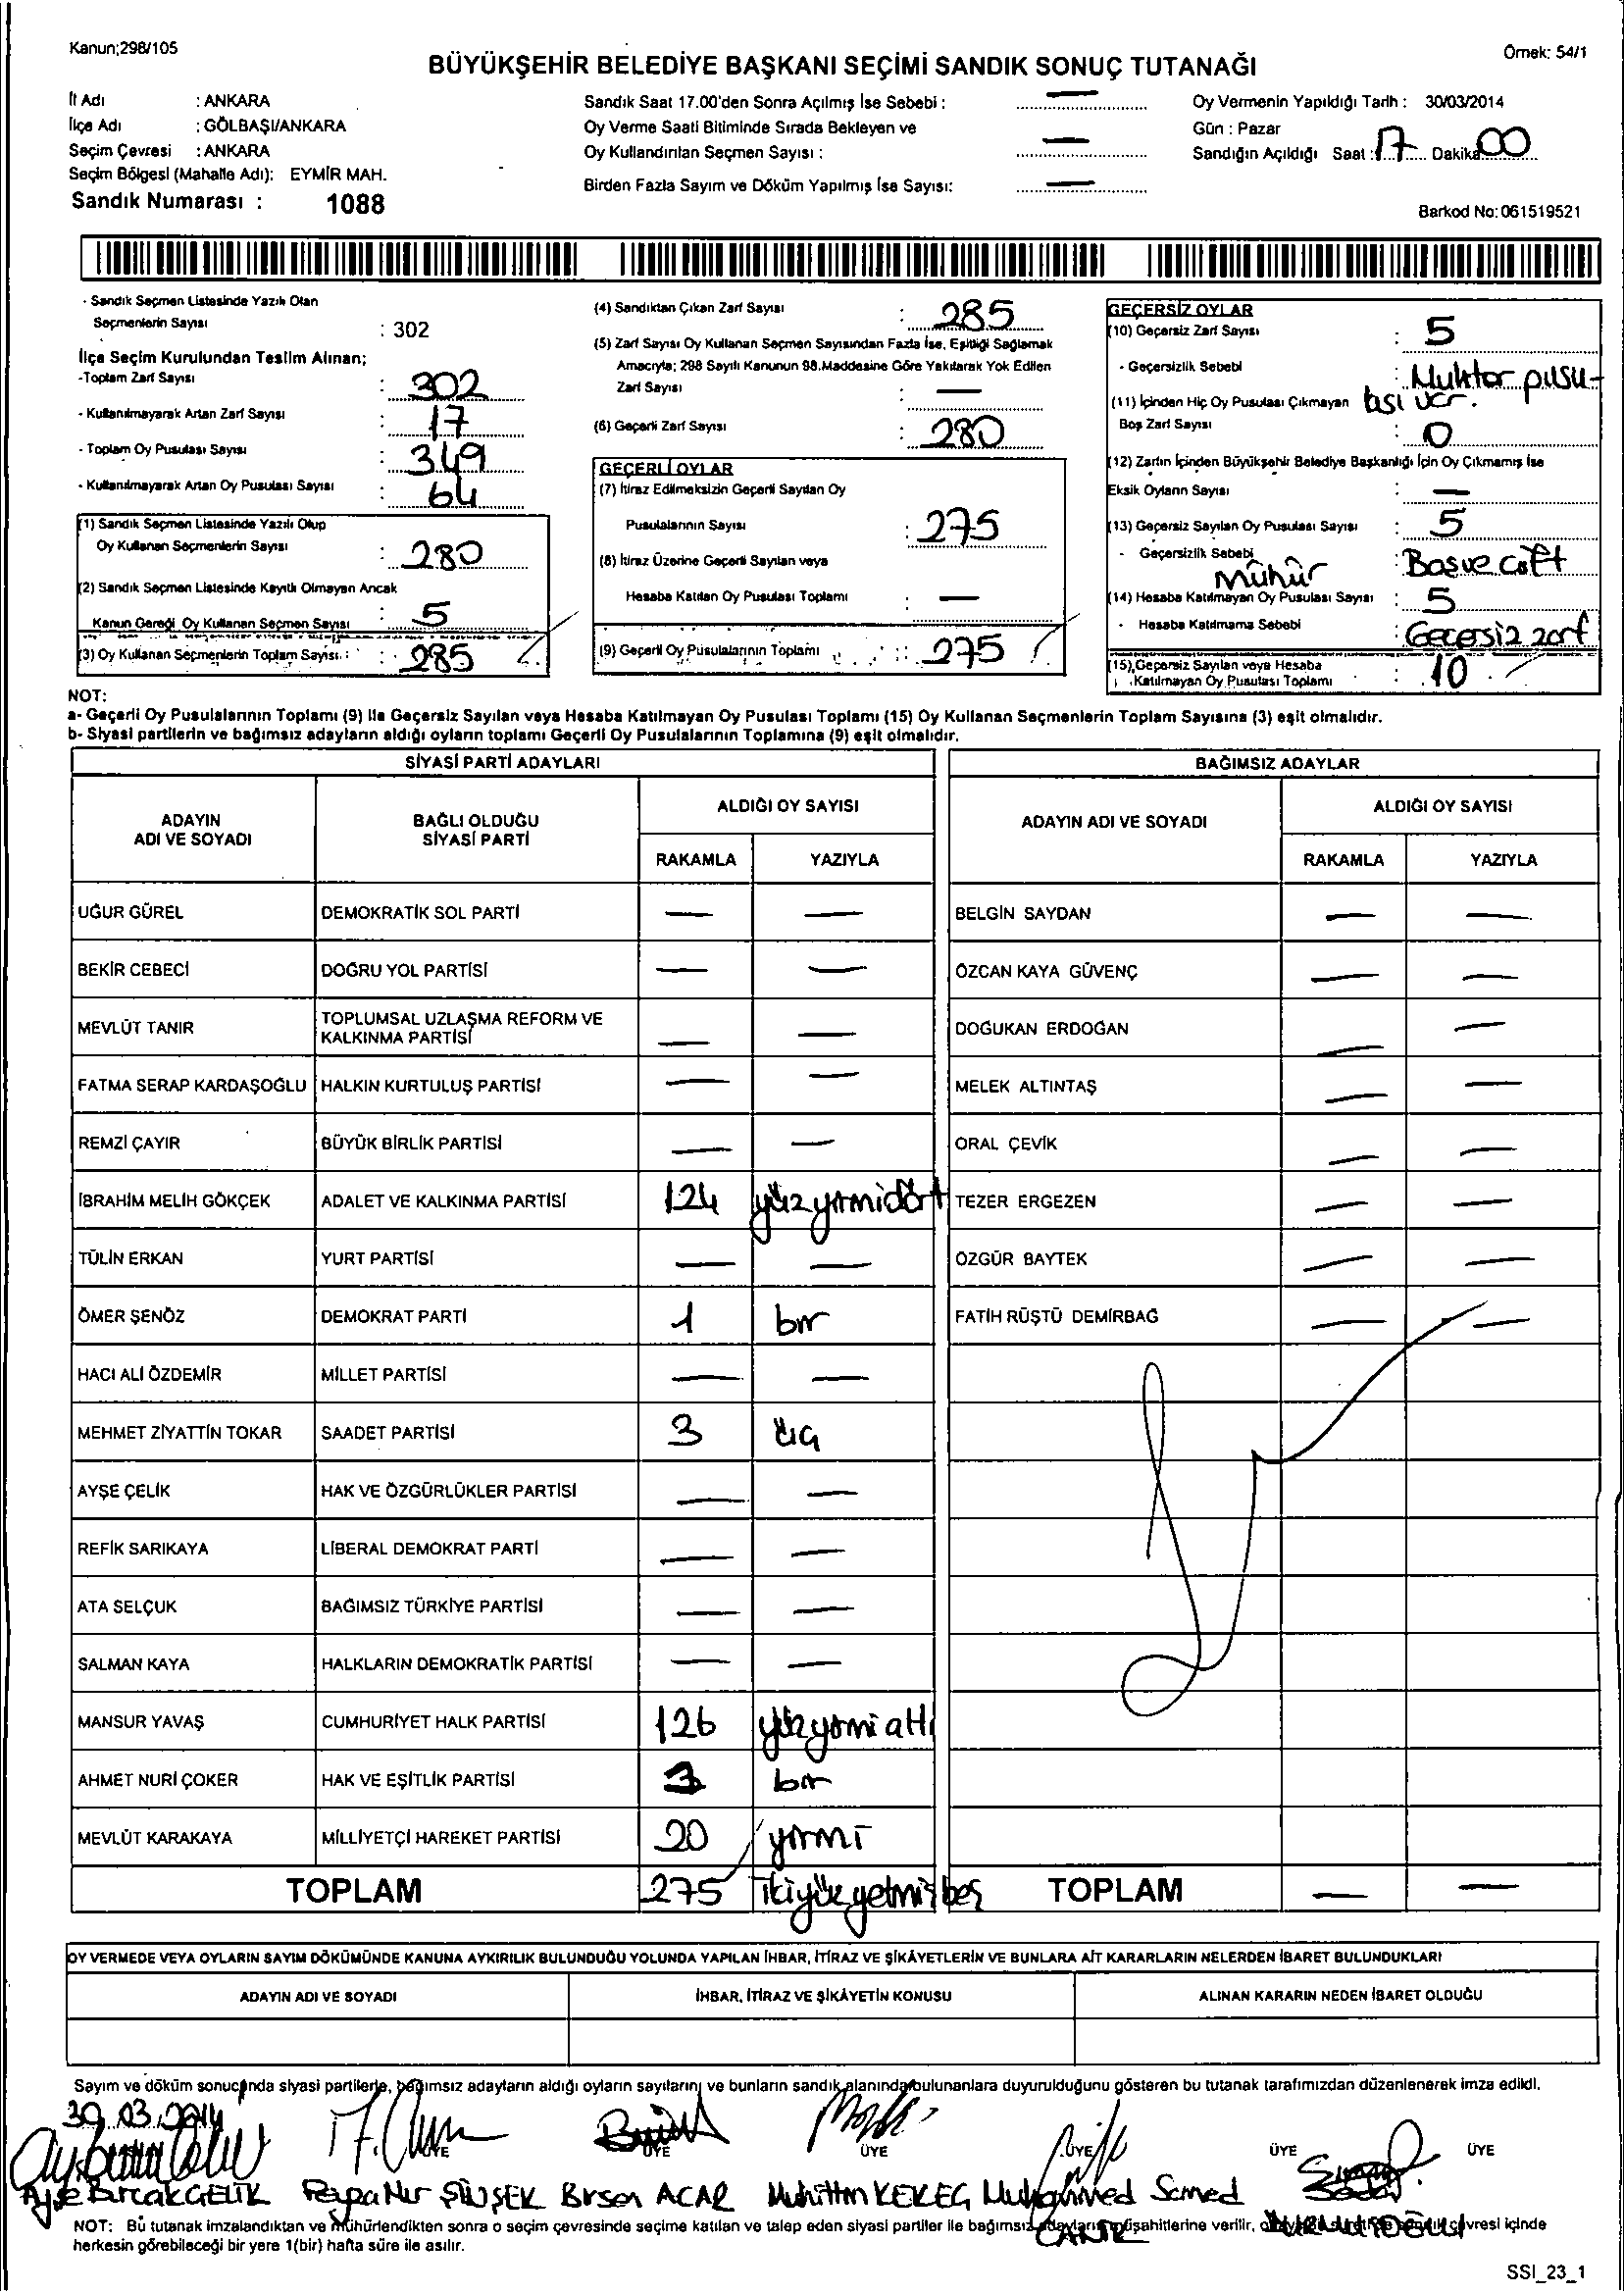 Kanun;298/105
Örnek: 54/1
BÜYÜKŞEHİR BELEDİYE BAŞKANI SEÇİMİ SANDIK SONUÇ TUTANAĞI
İl Adı : ANKARA
İlçe Adı : GÖLBAŞI/ANKARA
Seçim Çevresi : ANKARA
Seçim Bölgesi (Mahalle Adı): EYMİR MAH.
Sandık Numarası : 1088
Sandık Saat 17.00'den Sonra Açılmış İse Sebebi : —
Oy Verme Saati Bitiminde Sırada Bekleyen ve
Oy Kullandırılan Seçmen Sayısı : —
Birden Fazla Sayım ve Döküm Yapılmış İse Sayısı: —
Oy Vermenin Yapıldığı Tarih : 30/03/2014
Gün : Pazar
Sandığın Açıldığı Saat : 17 Dakika 00
Barkod No: 061519521
- Sandık Seçmen Listesinde Yazılı Olan
Seçmenlerin Sayısı : 302
İlçe Seçim Kurulundan Teslim Alınan;
-Toplam Zarf Sayısı : 302
- Kullanılmayarak Artan Zarf Sayısı : 17
- Toplam Oy Pusulası Sayısı : 349
- Kullanılmayarak Artan Oy Pusulası Sayısı : 64
(1) Sandık Seçmen Listesinde Yazılı Olup
Oy Kullanan Seçmenlerin Sayısı : 280
(2) Sandık Seçmen Listesinde Kayıtlı Olmayan Ancak
Kanun Gereği Oy Kullanan Seçmen Sayısı : 5
(3) Oy Kullanan Seçmenlerin Toplam Sayısı : 285
(4) Sandıktan Çıkan Zarf Sayısı : 285
(5) Zarf Sayısı Oy Kullanan Seçmen Sayısından Fazla İse, Eşitliği Sağlamak
Amacıyla; 298 Sayılı Kanunun 98.Maddesine Göre Yakılarak Yok Edilen
Zarf Sayısı : —
(6) Geçerli Zarf Sayısı : 280
GEÇERLİ OYLAR
(7) İtiraz Edilmeksizin Geçerli Sayılan Oy
Pusulalarının Sayısı : 275
(8) İtiraz Üzerine Geçerli Sayılan veya
Hesaba Katılan Oy Pusulası Toplamı : —
(9) Geçerli Oy Pusulalarının Toplamı : 275
GEÇERSİZ OYLAR
(10) Geçersiz Zarf Sayısı : 5
- Geçersizlik Sebebi : Muhtar pusu-
lası var.
(11) İçinden Hiç Oy Pusulası Çıkmayan
Boş Zarf Sayısı : 0
(12) Zarfın İçinden Büyükşehir Belediye Başkanlığı İçin Oy Çıkmamış İse
Eksik Oyların Sayısı : —
(13) Geçersiz Sayılan Oy Pusulası Sayısı : 5
- Geçersizlik Sebebi : Boş ve çift
mühür
(14) Hesaba Katılmayan Oy Pusulası Sayısı : 5
- Hesaba Katılmama Sebebi : Geçersiz zarf
(15) Geçersiz Sayılan veya Hesaba
Katılmayan Oy Pusulası Toplamı : 10
NOT:
a- Geçerli Oy Pusulalarının Toplamı (9) ile Geçersiz Sayılan veya Hesaba Katılmayan Oy Pusulası Toplamı (15) Oy Kullanan Seçmenlerin Toplam Sayısına (3) eşit olmalıdır.
b- Siyasi partilerin ve bağımsız adayların aldığı oyların toplamı Geçerli Oy Pusulalarının Toplamına (9) eşit olmalıdır.
SİYASİ PARTİ ADAYLARI
ADAYIN ADI VE SOYADI
BAĞLI OLDUĞU SİYASİ PARTİ
ALDIĞI OY SAYISI
RAKAMLA YAZIYLA
UĞUR GÜREL DEMOKRATİK SOL PARTİ — —
BEKİR CEBECİ DOĞRU YOL PARTİSİ — —
MEVLÜT TANIR TOPLUMSAL UZLAŞMA REFORM VE KALKINMA PARTİSİ — —
FATMA SERAP KARDAŞOĞLU HALKIN KURTULUŞ PARTİSİ — —
REMZİ ÇAYIR BÜYÜK BİRLİK PARTİSİ — —
İBRAHİM MELİH GÖKÇEK ADALET VE KALKINMA PARTİSİ 124 yüzyirmidört
TÜLİN ERKAN YURT PARTİSİ — —
ÖMER ŞENÖZ DEMOKRAT PARTİ 1 bir
HACI ALİ ÖZDEMİR MİLLET PARTİSİ — —
MEHMET ZİYATTİN TOKAR SAADET PARTİSİ 3 üç
AYŞE ÇELİK HAK VE ÖZGÜRLÜKLER PARTİSİ — —
REFİK SARIKAYA LİBERAL DEMOKRAT PARTİ — —
ATA SELÇUK BAĞIMSIZ TÜRKİYE PARTİSİ — —
SALMAN KAYA HALKLARIN DEMOKRATİK PARTİSİ — —
MANSUR YAVAŞ CUMHURİYET HALK PARTİSİ 126 yüzyirmi altı
AHMET NURİ ÇOKER HAK VE EŞİTLİK PARTİSİ bir
MEVLÜT KARAKAYA MİLLİYETÇİ HAREKET PARTİSİ 20 yirmi
TOPLAM 275 ikiyüz yetmişbeş
BAĞIMSIZ ADAYLAR
ADAYIN ADI VE SOYADI
ALDIĞI OY SAYISI
RAKAMLA YAZIYLA
BELGİN SAYDAN — —
ÖZCAN KAYA GÜVENÇ — —
DOĞUKAN ERDOĞAN — —
MELEK ALTINTAŞ — —
ORAL ÇEVİK — —
TEZER ERGEZEN — —
ÖZGÜR BAYTEK — —
FATİH RÜŞTÜ DEMİRBAĞ — —
TOPLAM — —
OY VERMEDE VEYA OYLARIN SAYIM DÖKÜMÜNDE KANUNA AYKIRILIK BULUNDUĞU YOLUNDA YAPILAN İHBAR, İTİRAZ VE ŞİKÂYETLERİN VE BUNLARA AİT KARARLARIN NELERDEN İBARET BULUNDUKLARI
ADAYIN ADI VE SOYADI İHBAR, İTİRAZ VE ŞİKÂYETİN KONUSU ALINAN KARARIN NEDEN İBARET OLDUĞU
Sayım ve döküm sonucunda siyasi partilerle, bağımsız adayların aldığı oyların sayılarını ve bunların sandık alanında bulunanlara duyurulduğunu gösteren bu tutanak tarafımızdan düzenlenerek imza edildi.
30.03.2014
ÜYE ÜYE ÜYE ÜYE ÜYE ÜYE
Ayşe Burcak ÇELİK Nur ŞİMŞEK Birsen ACAR Muhittin Muhammed Samed
NOT: Bu tutanak imzalandıktan ve mühürlendikten sonra o seçim çevresinde seçime katılan ve talep eden siyasi partiler ile bağımsız adayların müşahitlerine verilir, çevresi içinde
herkesin görebileceği bir yere 1(bir) hafta süre ile asılır.
SSI_23_1